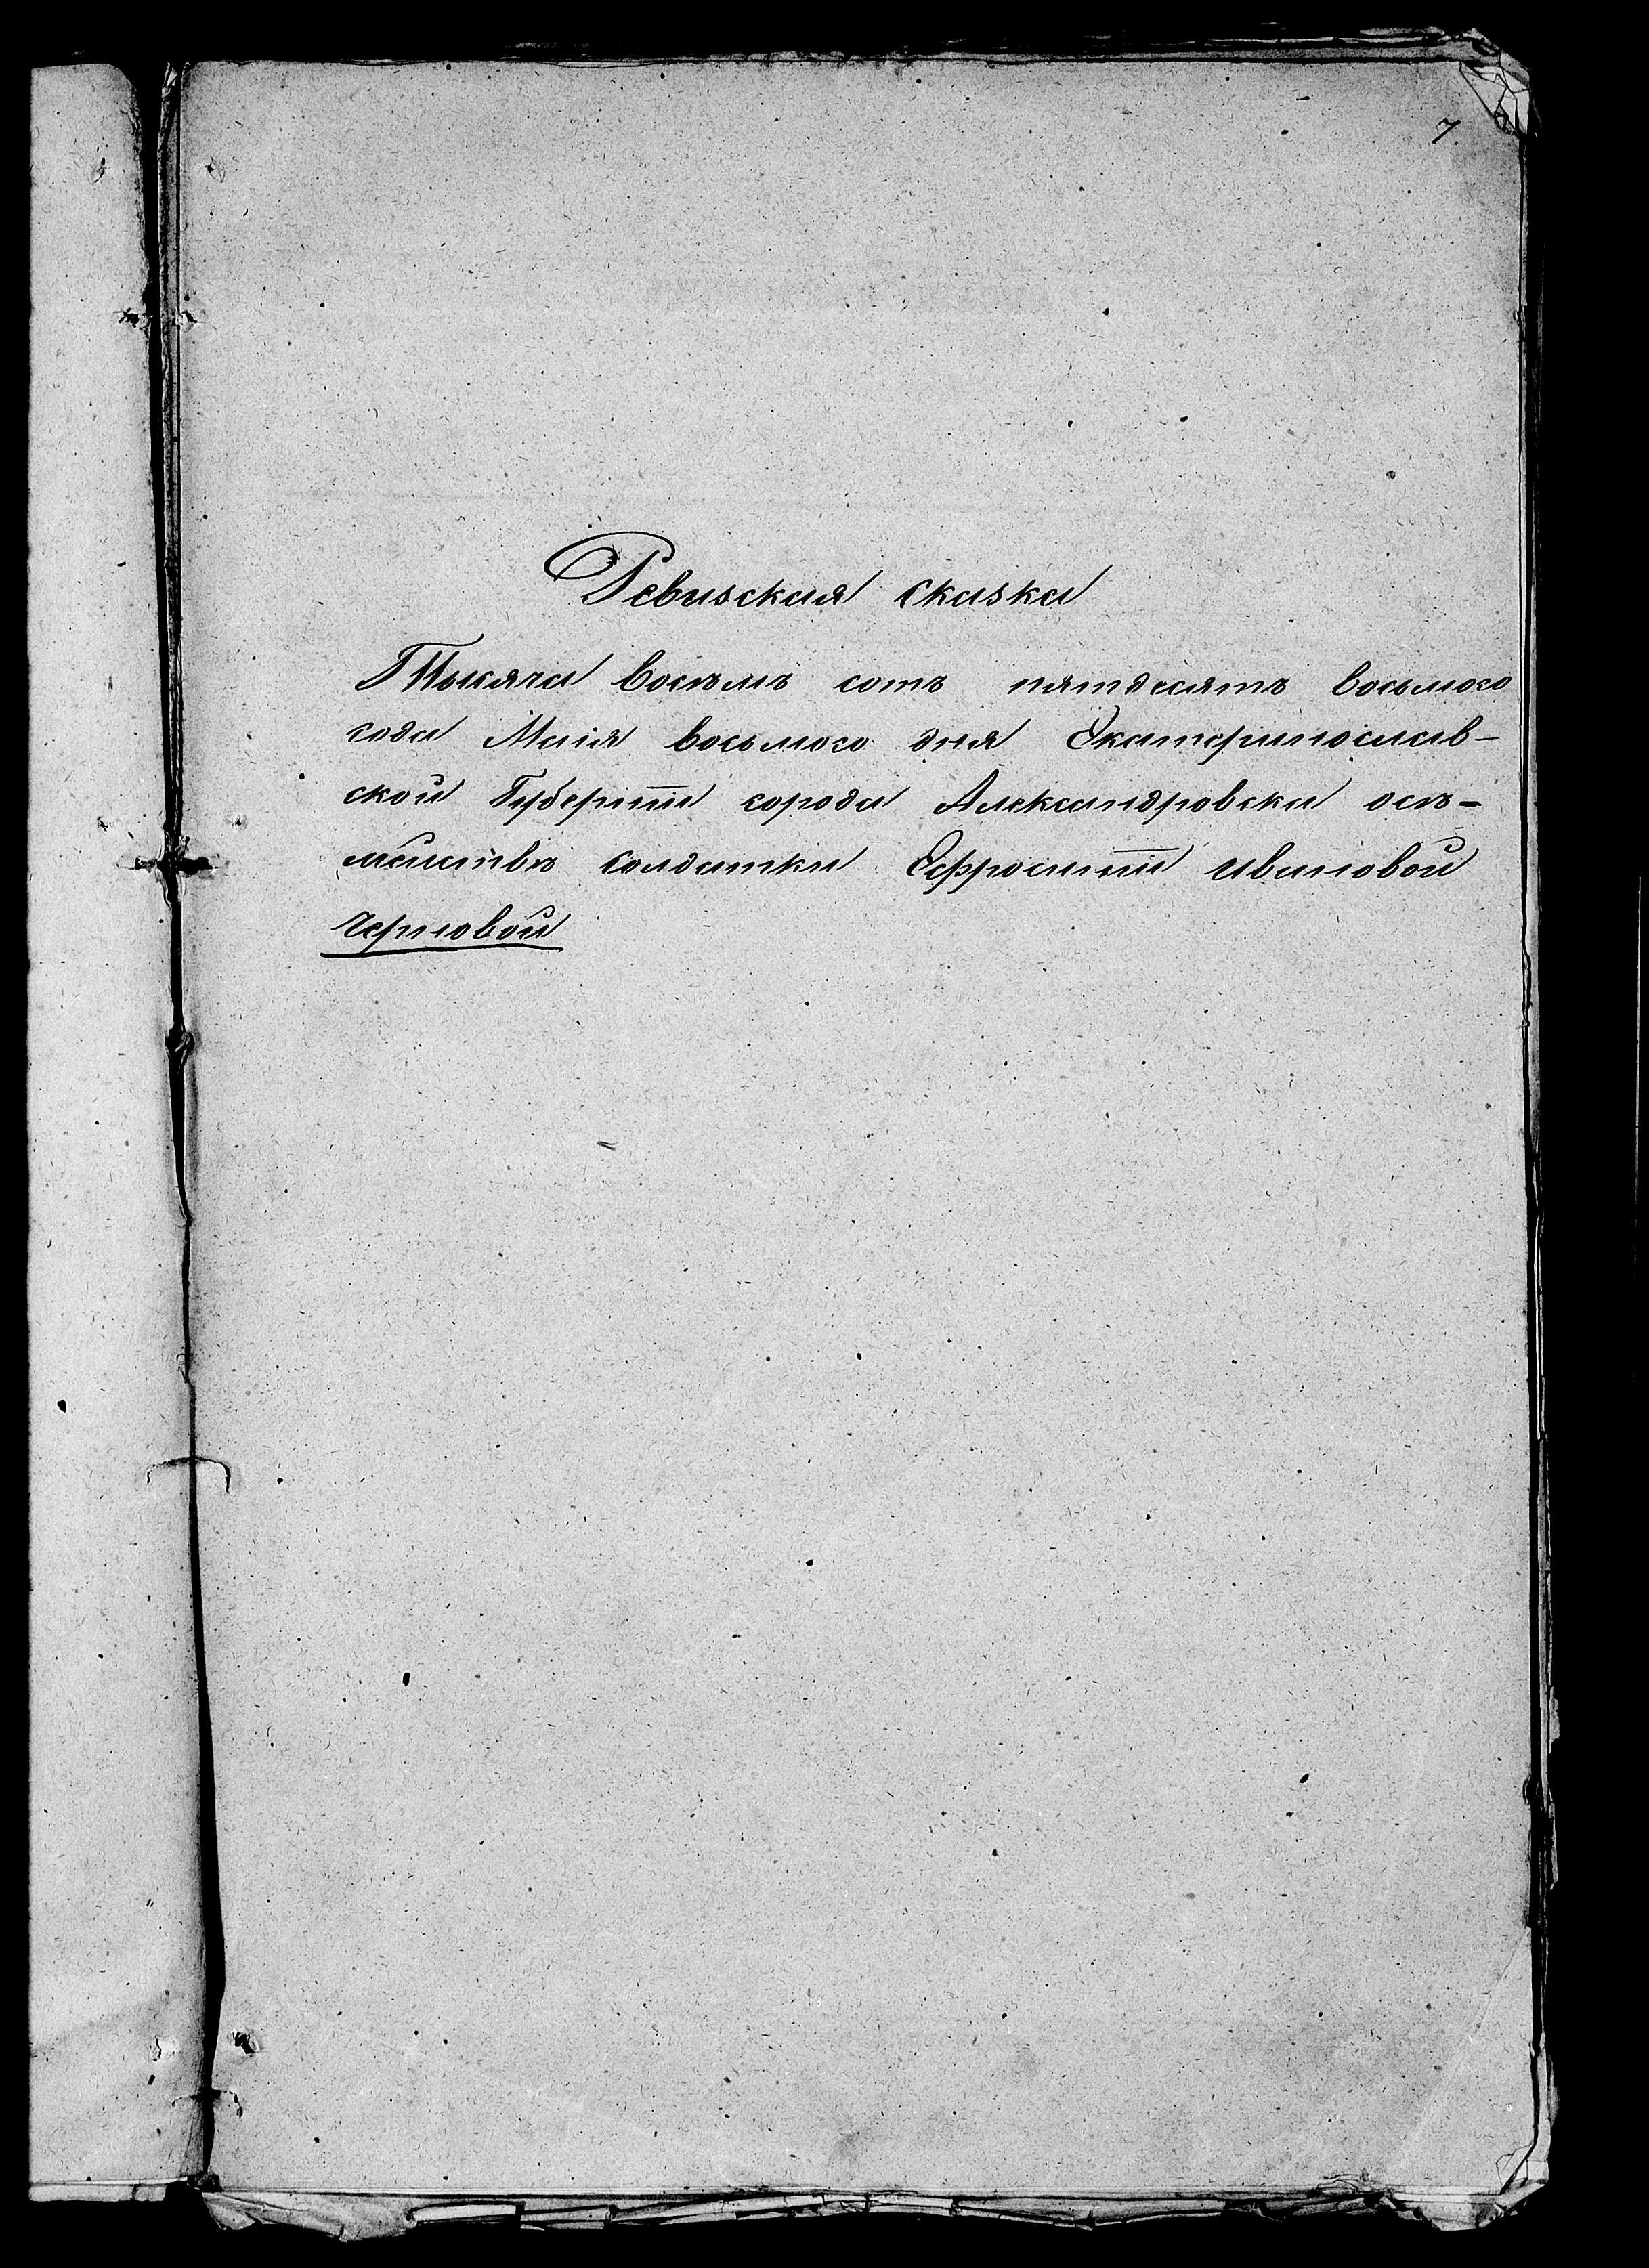 7.
Ревизская сказка
Тысяча восемъ сотъ пятдесятъ восьмого
года Маія восьмого дня Екатеринослав-
ской Губерніи города Александровска осѣ-
мѣйствѣ солдатки Ефросиніи Ивановой
черновой